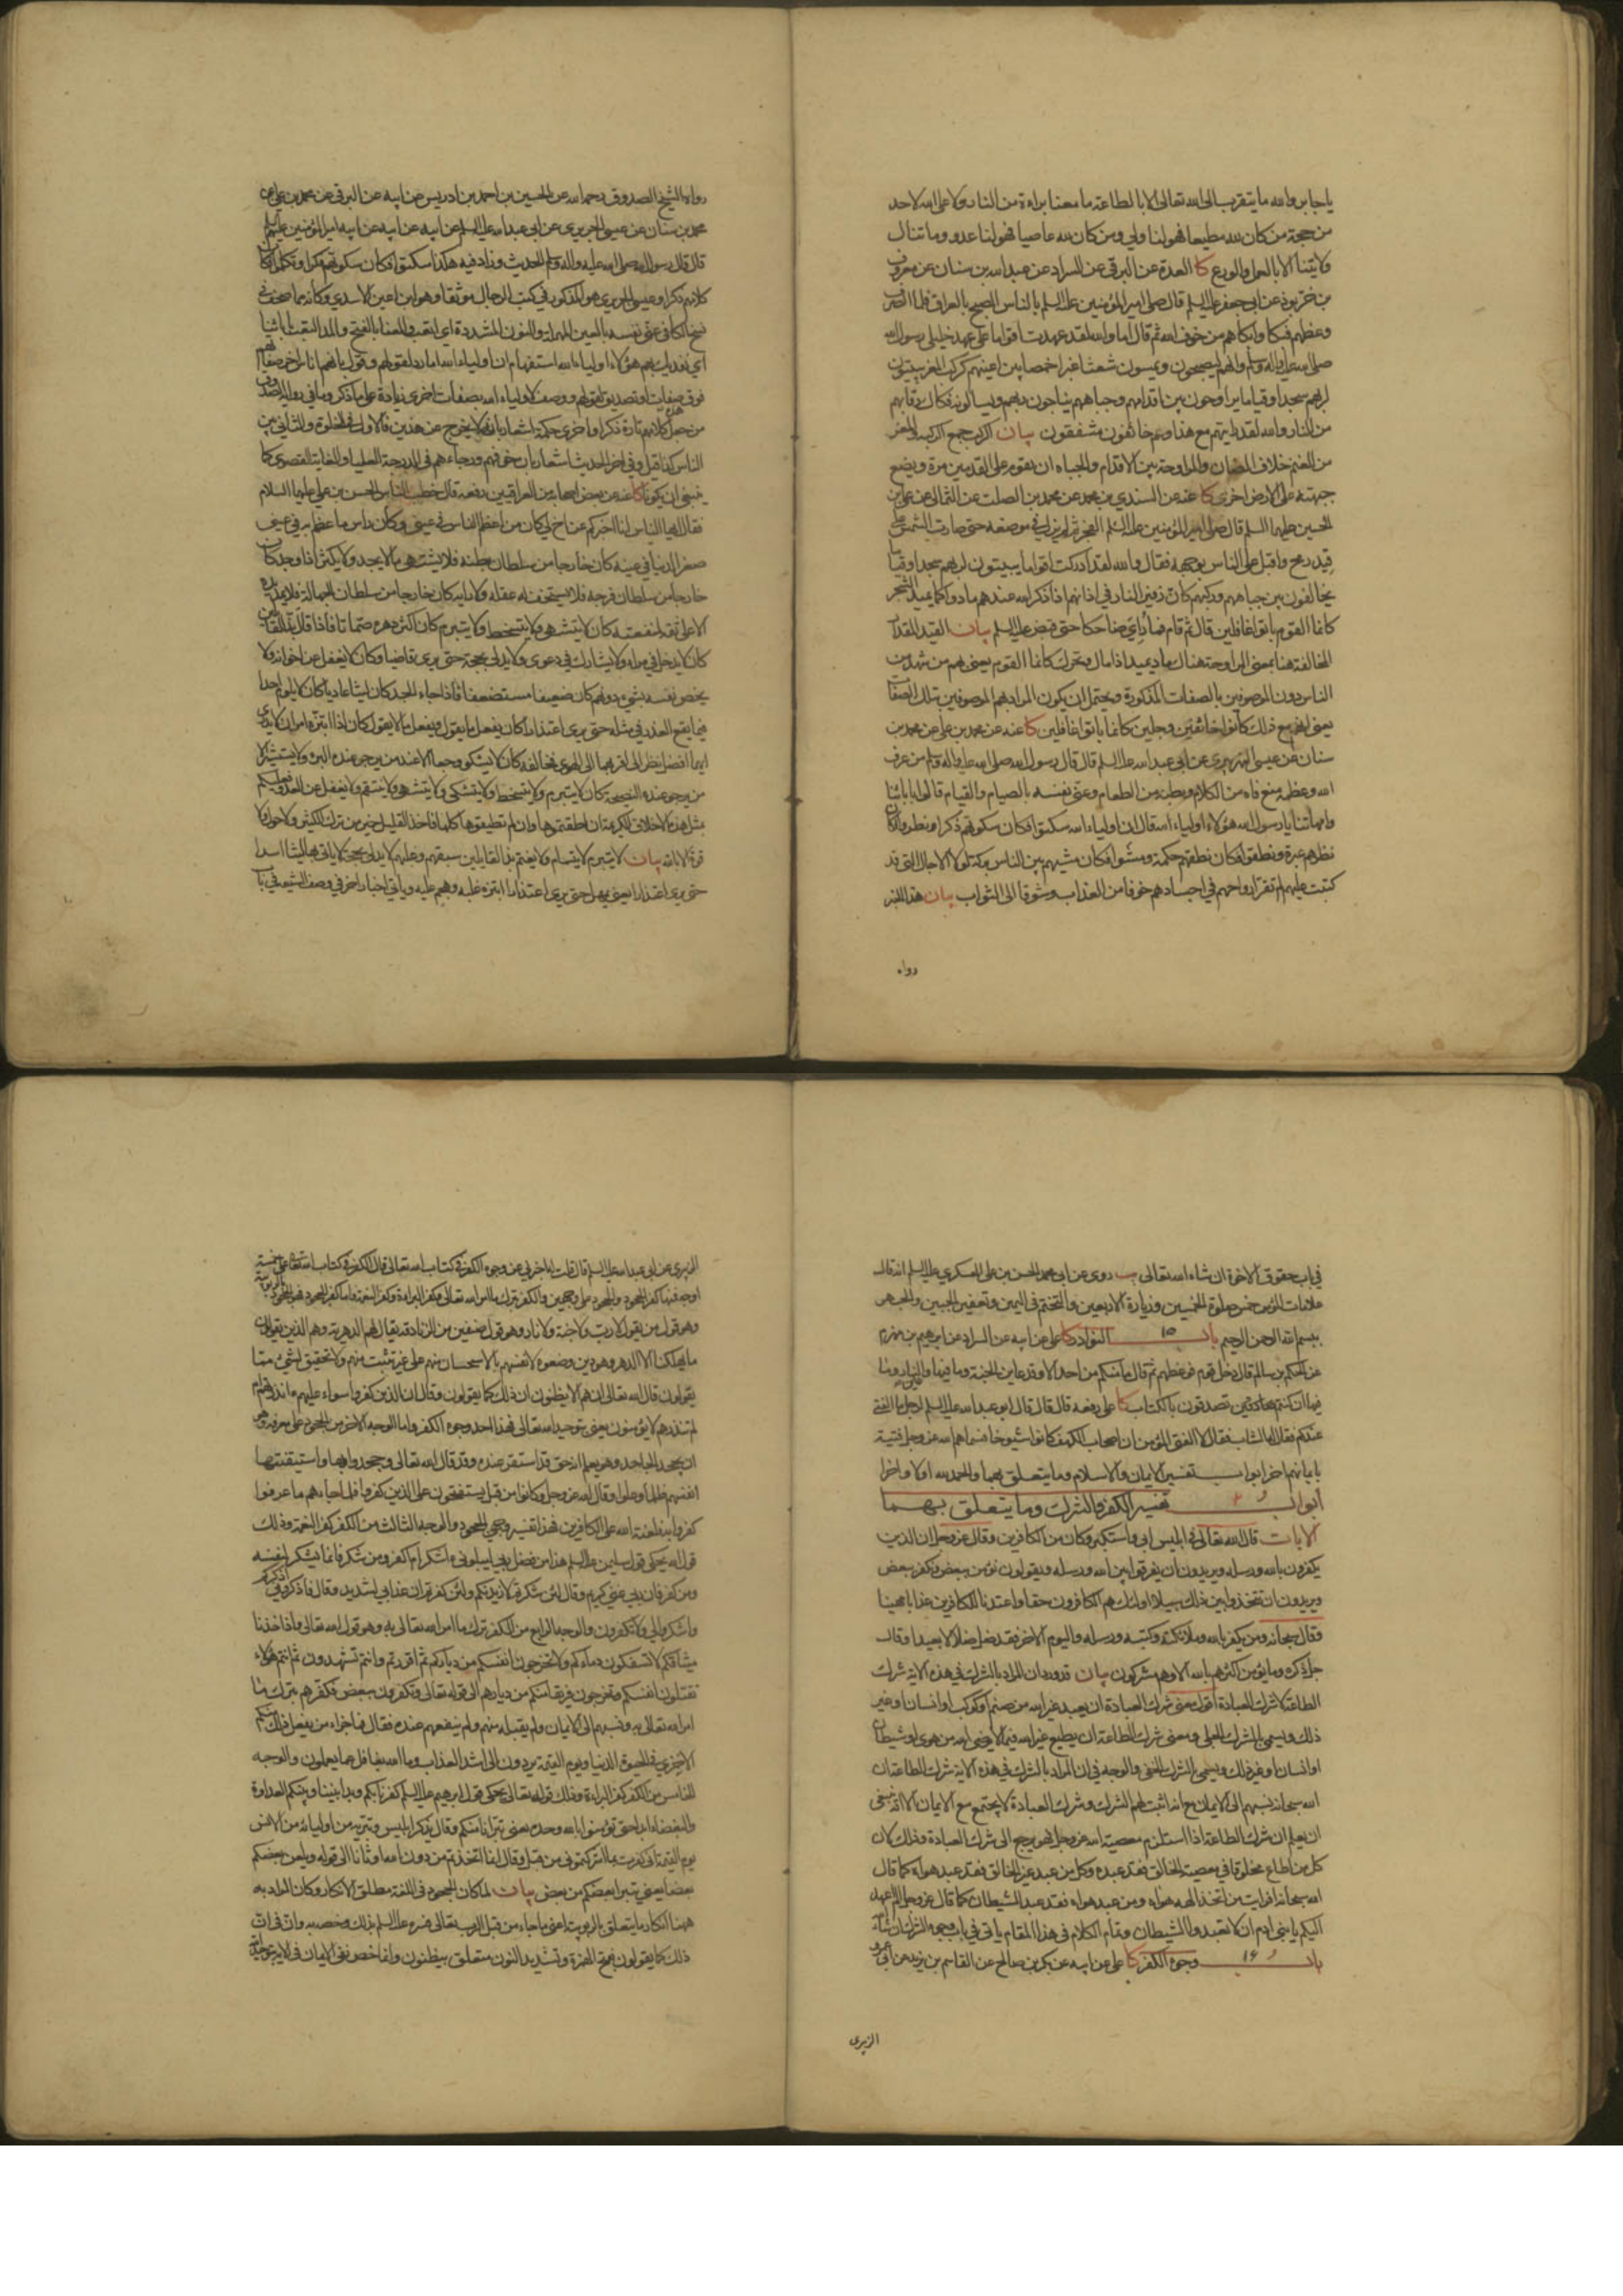 يا جابر والله ما يتقرب الى الله تعالى الا بالطاعة ما معنا براءة من النار ولا على الله لاحد
من حجة من كان لله مطيعا فهو لنا ولي ومن كان لله عاصيا فهو لنا عدو وما تنال
ولايتنا الا بالعمل والورع كا العدة عن البرقي عن السراد عن عبد الله بن سنان عن معروف
بن خربوذ عن ابي جعفر عليه السلم قال صلى امير المؤمنين عليه السلم بالناس الصبح بالعراق فلما انصرف
وعظهم فبكا وابكاهم من خوف الله ثم قال اما والله لقد عهدت اقواما على عهد خليلي رسول الله
صلى الله عليه واله وسلم وانهم ليصبحون ويمسون شعثا غبرا خمصا بين اعينهم كركب المعزى يبيتون
لربهم سجدا وقياما يراوحون بين اقدامهم وجباههم يناجون ربهم ويسالونه فكاك رقابهم
من النار والله لقد رايتهم مع هذا وهم خائفون مشفقون بيان الركب جمع الركبة والمعز
من الغنم خلاف الضان والمراوحة بين الاقدام والجباه ان يقوم على القدمين مرة ويضع
جبهته على الارض اخرى كا عنه عن السندي بن محمد عن محمد بن الصلت عن الثمالي عن علي بن
الحسين عليهما السلم قال صلى امير المؤمنين عليه السلم الفجر ثم لم يزل في موضعه حتى صارت الشمس على
قيد رمح واقبل على الناس بوجهه فقال والله لقد ادركت اقواما يبيتون لربهم سجدا وقياما
يخالفون بين جباههم وركبهم كان زفير النار في اذانهم اذا ذكر الله عندهم مادوا كما يميد الشجر
كانما القوم باتوا غافلين قال ثم قام فما رئي ضاحكا حتى قبض عليه السلم بيان القيد المقدار
المخالفة هنا بمعنى المراوحة هناك ماد يميد اذا مال وتحرك كانما القوم يعني بهم من شهد من
الناس دون الموصوفين بالصفات المذكورة ويحتمل ان يكون المراد بهم الموصوفين بتلك الصفات
يعني انهم مع ذلك كانوا خائفين وجلين كانما باتوا غافلين كا عنه عن محمد بن علي عن محمد بن
سنان عن عيسى النهريري عن ابي عبد الله عليه السلم قال قال رسول الله صلى الله عليه واله وسلم من عرف
الله وعظمه منع فاه من الكلام وبطنه من الطعام وعنى نفسه بالصيام والقيام قالوا بابائنا
وامهاتنا يا رسول الله هؤلاء اولياء الله قال ان اولياء الله سكتوا فكان سكوتهم ذكرا ونظروا فكان
نظرهم عبرة ونطقوا فكان نطقهم حكمة ومشوا فكان مشيهم بين الناس بركة لولا الاجال التي قد
كتبت عليهم لم تقر ارواحهم في اجسادهم خوفا من العذاب وشوقا الى الثواب بيان هذا الخبر
رواه
رواه الشيخ الصدوق رحمه الله عن الحسين بن احمد بن ادريس عن ابيه عن البرقي عن محمد بن علي عن
محمد بن سنان عن عيسى الجريري عن ابي عبد الله عليه السلم عن ابيه عن ابيه عن ابيه امير المؤمنين عليهم السلم
قال قال رسول الله صلى الله عليه واله وسلم الحديث وزاد فيه هكذا سكتوا فكان سكوتهم فكرا وتكلموا فكان
كلامهم ذكرا وعيسى الجريري هو المذكور في كتب الرجال موثقا وهو ابن اعين الاسدي وكانه مما صحف في
نسخ الكافي عنى نفسه بالعين المهملة والنون المشددة اي اتعب والعناء بالفتح والمد التعب بابائنا
اي نفديك بهم هؤلاء اولياء الله استفهام ان اولياء الله اما رد لقولهم وقول بانهم اناس اخر صفاتهم
فوق صفات وتصديق لقولهم ووصف لاولياء الله بصفات اخرى زيادة على ما ذكر وما في رواية الصدوق
من جعل كلامهم تارة ذكرا واخرى حكمة اشعار بانه لا يخرج عن هذين فالاول في الخلوة والثاني بين
الناس كذا قيل وفي اخر الحديث اشعار بان خوفهم ورجاءهم في الدرجة العليا والغاية القصوى كما
ينبغي ان يكونا كا عنه عن بعض اصحابه من العراقيين رفعه قال خطب الناس الحسن بن علي عليهما السلام
فقال ايها الناس انا اخبركم عن اخ لي كان من اعظم الناس في عيني وكان راس ما عظم به في عيني
صغر الدنيا في عينه كان خارجا من سلطان بطنه فلا يشتهي ما لا يجد ولا يكثر اذا وجد كان
خارجا من سلطان فرجه فلا يستخف له عقله ولا رايه كان خارجا من سلطان الجهالة فلا يمد يده
الا على ثقة لمنفعة كان لا يتشهى ولا يتسخط ولا يتبرم كان اكثر دهره صماتا فاذا قال بذ القائلين
كان لا يدخل في مراء ولا يشارك في دعوى ولا يدلي بحجة حتى يرى قاضيا وكان لا يغفل عن اخوانه ولا
يخص نفسه بشيء دونهم كان ضعيفا مستضعفا فاذا جاء الجد كان ليثا عاديا كان لا يلوم احدا
فيما يقع العذر في مثله حتى يرى اعتذارا كان يفعل ما يقول ويفعل ما لا يقول كان اذا ابتزه امران لا يدري
ايهما افضل نظر الى اقربهما الى الهوى فخالفه كان لا يشكو وجعا الا عند من يرجو عنده البرء ولا يستشير الا
من يرجو عنده النصيحة كان لا يتبرم ولا يتسخط ولا يتشكى ولا يتشهى ولا ينتقم ولا يغفل عن العدو فعليكم
بمثل هذه الاخلاق الكريمة ان اطقتموها وان لم تطيقوها كلها فاخذ القليل خير من ترك الكثير ولا حول ولا
قوة الا بالله بيان لا يتبرم لا يتسام ولا يغتم بذ القايلين سبقهم وغلبهم لا يدلي بحجة لا ياتي بها ليثا اسدا
حتى يرى اعتذارا يعني يمهل حتى يرى اعتذارا ابتزه غلبه وهجم عليه وياتي اخبار اخر في وصف الشيعة في باب
في باب حقوق الاخوة ان شاء الله تعالى يب روى عن ابي محمد الحسن بن علي العسكري عليه السلم انه قال
علامات المؤمن خمس صلوة الخمسين وزيارة الاربعين والتختم في اليمين وتعفير الجبين والجهر
ببسم الله الرحمن الرحيم باب ١٥ النوادر كا علي عن ابيه عن السراد عن ابرهيم بن مهزم
عن الحكم بن سالم قال دخل قوم فوعظهم ثم قال ما منكم من احد الا وقد عاين الجنة وما فيها والنار وما
فيها ان كنتم تصدقون بالكتاب كا علي رفعه قال قال ابو عبد الله عليه السلم لرجل ما الفتى
عندكم فقال له الشاب فقال لا الفتى المؤمن ان اصحاب الكهف كانوا شيوخا فسماهم الله عز وجل فتية
بايمانهم اخر ابواب تفسير الايمان والاسلام وما يتعلق بهما والحمد لله اولا واخرا
ابواب تفسير الكفر والشرك وما يتعلق بهما
الايات قال الله تعالى في ابليس ابى واستكبر وكان من الكافرين وقال عز وجل ان الذين
يكفرون بالله ورسله ويريدون ان يفرقوا بين الله ورسله ويقولون نؤمن ببعض ونكفر ببعض
ويريدون ان يتخذوا بين ذلك سبيلا اولئك هم الكافرون حقا واعتدنا للكافرين عذابا مهينا
وقال سبحانه ومن يكفر بالله وملائكته وكتبه ورسله واليوم الاخر فقد ضل ضلالا بعيدا وقال
جل ذكره وما يؤمن اكثرهم بالله الا وهم مشركون بيان قد ورد ان المراد بالشرك في هذه الاية شرك
الطاعة لا شرك العبادة اقول معنى شرك العبادة ان يعبد غير الله من صنم او كوكب او انسان او غير
ذلك ويسمى بالشرك الجلي ومعنى شرك الطاعة ان يطيع غير الله فيما لا يرضى الله من هوى او شيطان
او انسان او غير ذلك ويسمى بالشرك الخفي والوجه في ان المراد بالشرك في هذه الاية شرك الطاعة ان
الله سبحانه نسبهم الى الايمان مع انه اثبت لهم الشرك وشرك العبادة لا يجتمع مع الايمان الا انه ينبغي
ان يعلم ان شرك الطاعة اذا استلزم معصية الله عز وجل فهو يرجع الى شرك العبادة وذلك لان
كل من اطاع مخلوقا في معصية الخالق فقد عبده وكل من عبد غير الخالق فقد عبد هواه كما قال
الله سبحانه افرايت من اتخذ الهه هواه ومن عبد هواه فقد عبد الشيطان كما قال عز وجل الم اعهد
اليكم يا بني ادم ان لا تعبدوا الشيطان وتمام الكلام في هذا المقام ياتي في باب وجوه الشرك ان شاء الله
باب ١٦ وجوه الكفر كا علي عن ابيه عن بكر بن صالح عن القاسم بن يزيد عن ابي عمرو
الزبيري
الزبيري عن ابي عبد الله عليه السلم قال قلت له اخبرني عن وجوه الكفر في كتاب الله تعالى قال الكفر في كتاب الله تعالى على خمسة
اوجه فمنها كفر الجحود والجحود على وجهين والكفر بترك ما امر الله تعالى وكفر البراءة وكفر النعمة فاما كفر الجحود فهو الجحود بالربوبية
وهو قول من يقول لا رب ولا جنة ولا نار وهو قول صنفين من الزنادقة يقال لهم الدهرية وهم الذين يقولون
ما يهلكنا الا الدهر وهو دين وضعوه لانفسهم بالاستحسان منهم على غير تثبت منهم ولا تحقيق لشيء مما
يقولون قال الله تعالى ان هم الا يظنون ان ذلك كما يقولون وقال ان الذين كفروا سواء عليهم ءانذرتهم ام
لم تنذرهم لا يؤمنون يعني بتوحيد الله تعالى فهذا احد وجوه الكفر واما الوجه الاخر من الجحود على معرفة وهو
ان يجحد الجاحد وهو يعلم انه حق قد استقر عنده وقد قال الله تعالى وجحدوا بها واستيقنتها
انفسهم ظلما وعلوا وقال الله عز وجل وكانوا من قبل يستفتحون على الذين كفروا فلما جاءهم ما عرفوا
كفروا به فلعنة الله على الكافرين فهذا تفسير وجهي الجحود والوجه الثالث من الكفر كفر النعمة وذلك
قوله يحكي قول سليمن عليه السلم هذا من فضل ربي ليبلوني ءاشكر ام اكفر ومن شكر فانما يشكر لنفسه
ومن كفر فان ربي غني كريم وقال لئن شكرتم لازيدنكم ولئن كفرتم ان عذابي لشديد وقال فاذكروني اذكركم
واشكروا لي ولا تكفرون والوجه الرابع من الكفر ترك ما امر الله تعالى به وهو قول الله تعالى واذ اخذنا
ميثاقكم لا تسفكون دماءكم ولا تخرجون انفسكم من دياركم ثم اقررتم وانتم تشهدون ثم انتم هؤلاء
تقتلون انفسكم وتخرجون فريقا منكم من ديارهم الى قوله تعالى وتكفرون ببعض فكفرهم بترك ما
امر الله تعالى به ونسبهم الى الايمان ولم يقبله منهم ولم ينفعهم عنده فقال فما جزاء من يفعل ذلك منكم
الا خزي في الحيوة الدنيا ويوم القيمة يردون الى اشد العذاب وما الله بغافل عما يعملون والوجه
الخامس من الكفر كفر البراءة وذلك قوله تعالى يحكي قول ابرهيم عليه السلم كفرنا بكم وبدا بيننا وبينكم العداوة
والبغضاء ابدا حتى تؤمنوا بالله وحده يعني تبرانا منكم وقال يذكر ابليس وتبريه من اوليائه من الانس
يوم القيمة اني كفرت بما اشركتموني من قبل وقال انما اتخذتم من دون الله اوثانا الى قوله ويلعن بعضكم
بعضا يعني تبرا بعضكم من بعض بيان لما كان الجحود في اللغة مطلق الانكار وكان المراد به
ههنا انكار ما يتعلق بالربوبية اعني ما جاء من قبل الرب تعالى فسره عليه السلم بذلك وخصه به وان في ان
ذلك كما يقولون بفتح الهمزة وتشديد النون متعلق بيظنون وانما خص نفي الايمان في الاية بتوحيد